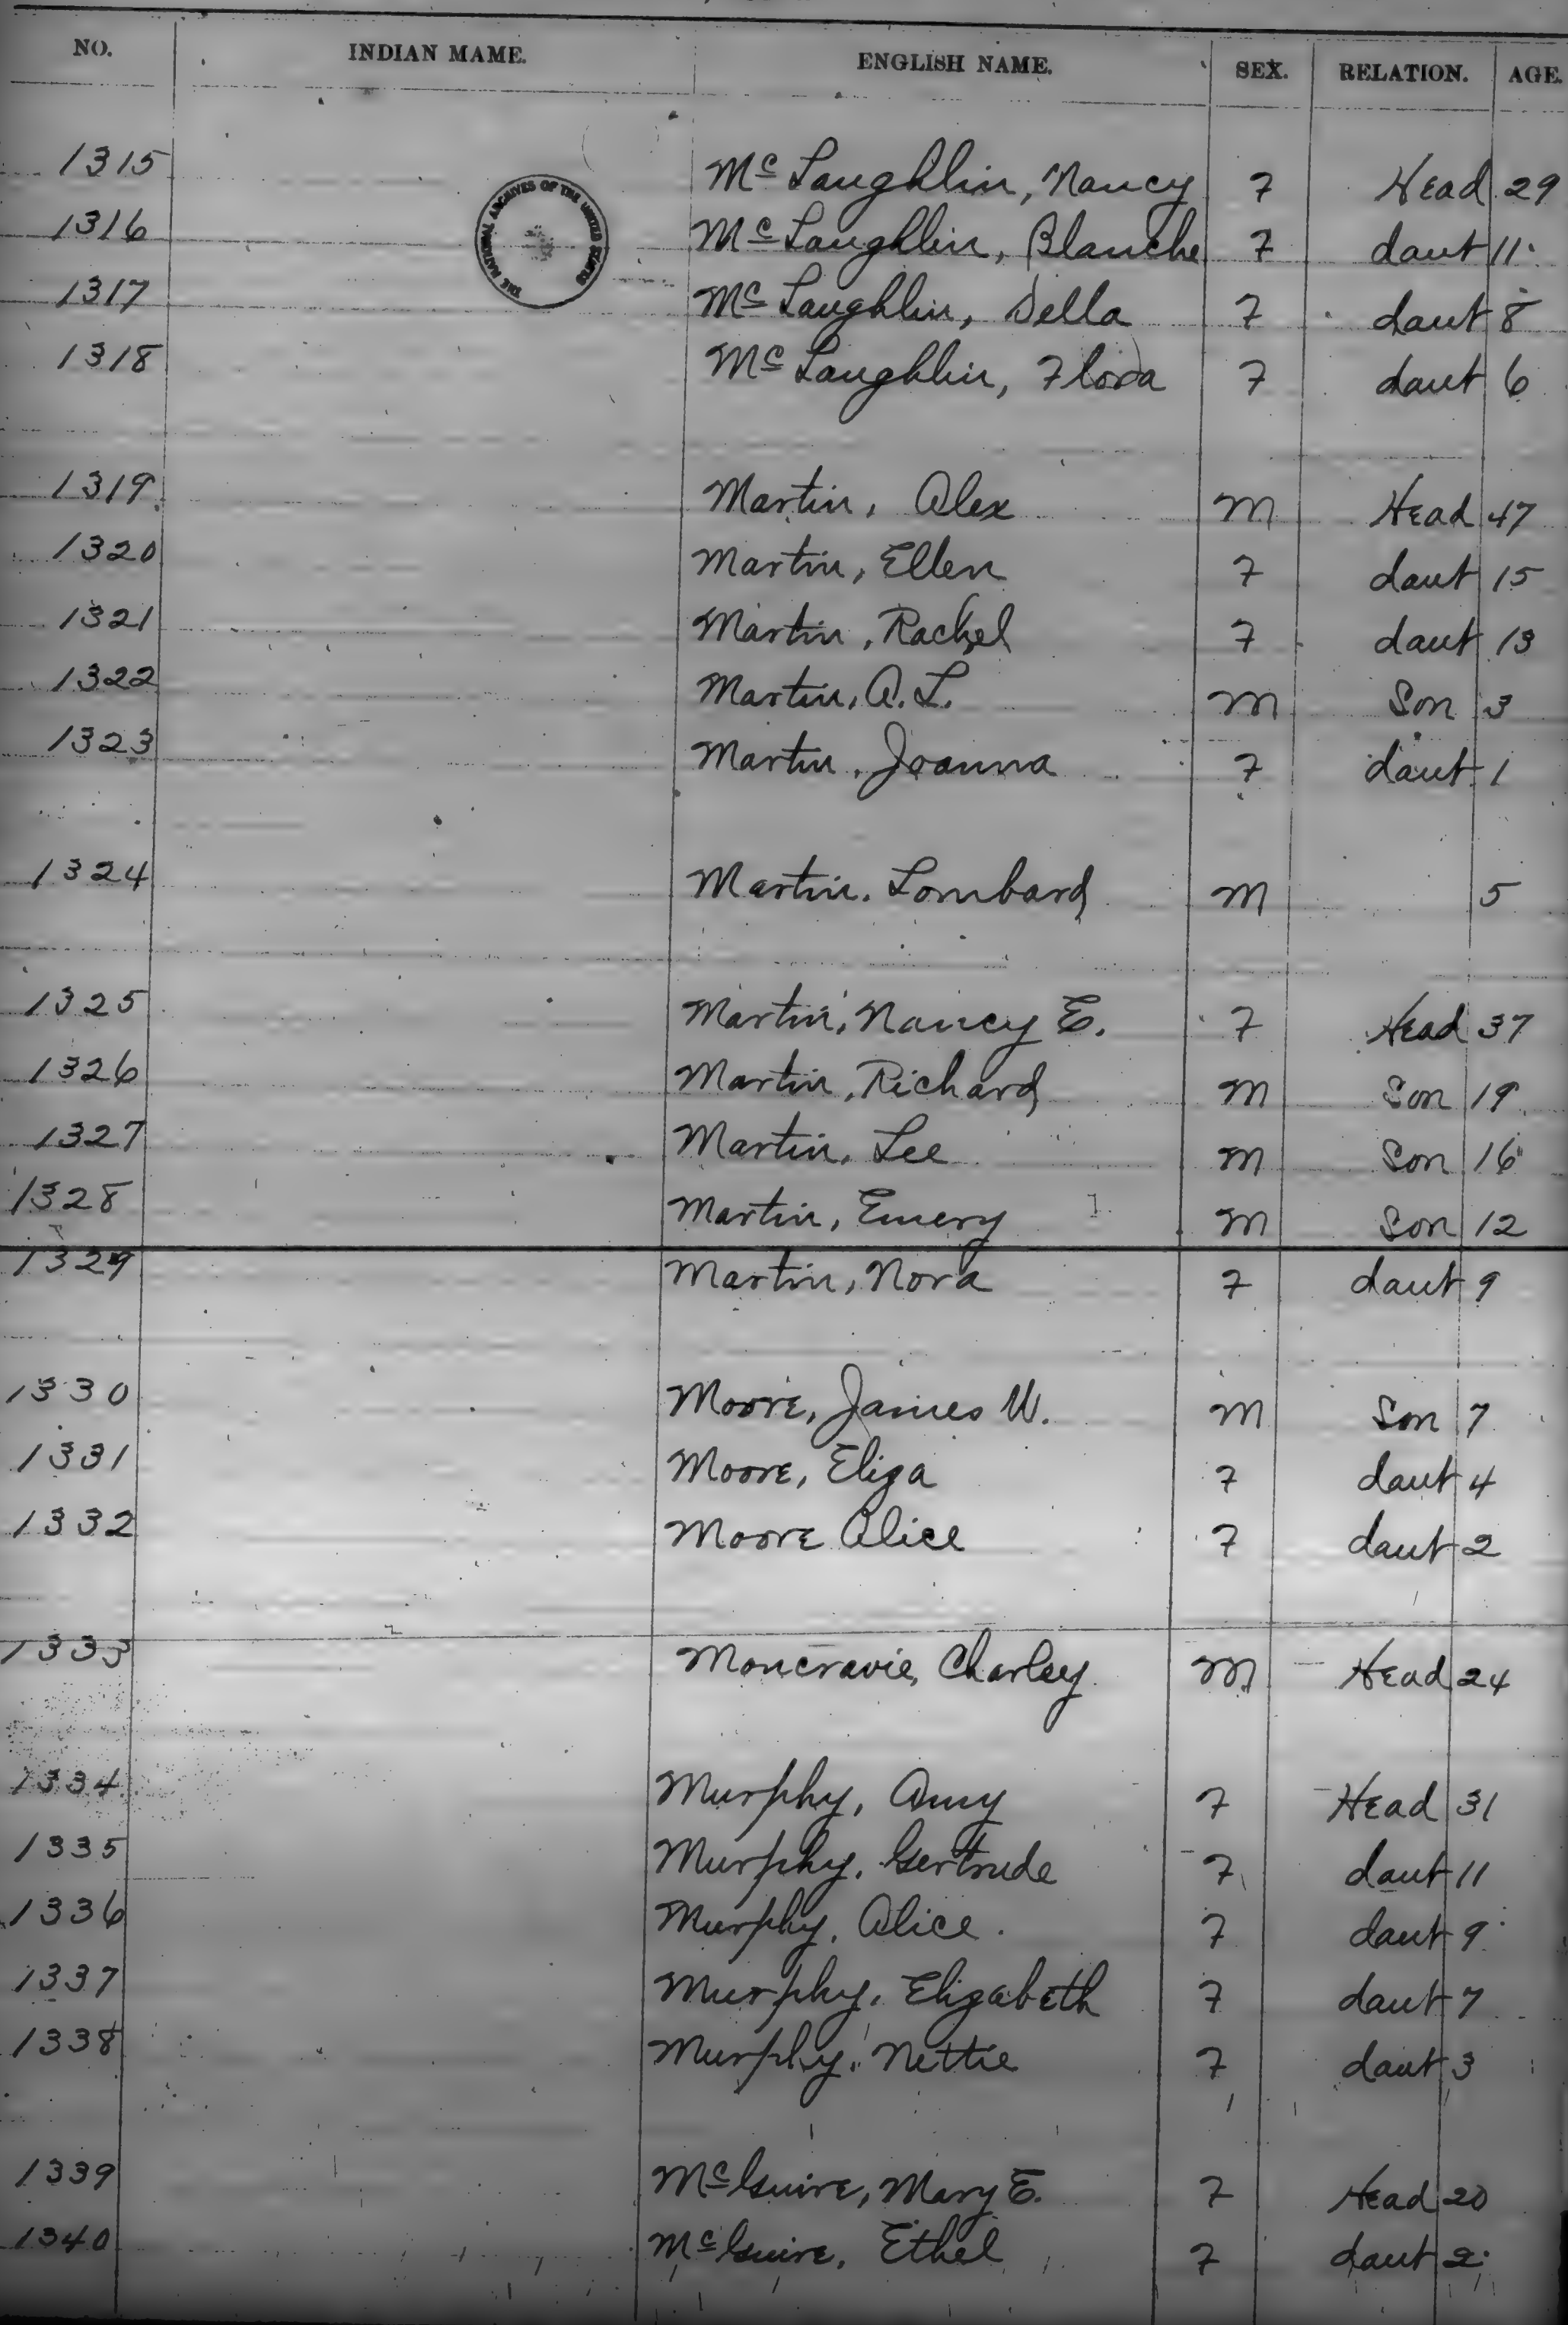 NO. INDIAN MAME. ENGLISH NAME. SEX. RELATION. AGE.
1315 McLaughlin, Nancy F Head 29
THE NATIONAL ARCHIVES OF THE UNITED STATES
1316 McLaughlin, Blanche F daut 11
1317 McLaughlin, Della F daut 8
1318 McLaughlin, Flora F daut 6
1319 Martin, Alex M Head 47
1320 Martin, Ellen F daut 15
1321 Martin, Rachel F daut 13
1322 Martin, A.L. M Son 3
1323 Martin, Joanna F daut 1
1324 Martin, Lombard M 5
1325 Martin, Nancy E. F Head 37
1326 Martin, Richard M Son 19
1327 Martin, Lee M Son 16
1328 Martin, Emery M Son 12
1329 Martin, Nora F daut 9
1330 Moore, James W. M Son 7
1331 Moore, Eliza F daut 4
1332 Moore Alice F daut 2
1333 Moncravie, Charley M Head 24
1334 Murphy, Amy F Head 31
1335 Murphy, Gertrude F daut 11
1336 Murphy, Alice F daut 9
1337 Murphy, Elizabeth F daut 7
1338 Murphy, Nettie F daut 3
1339 McGuire, Mary E. F Head 20
1340 McGuire, Ethel F daut 2